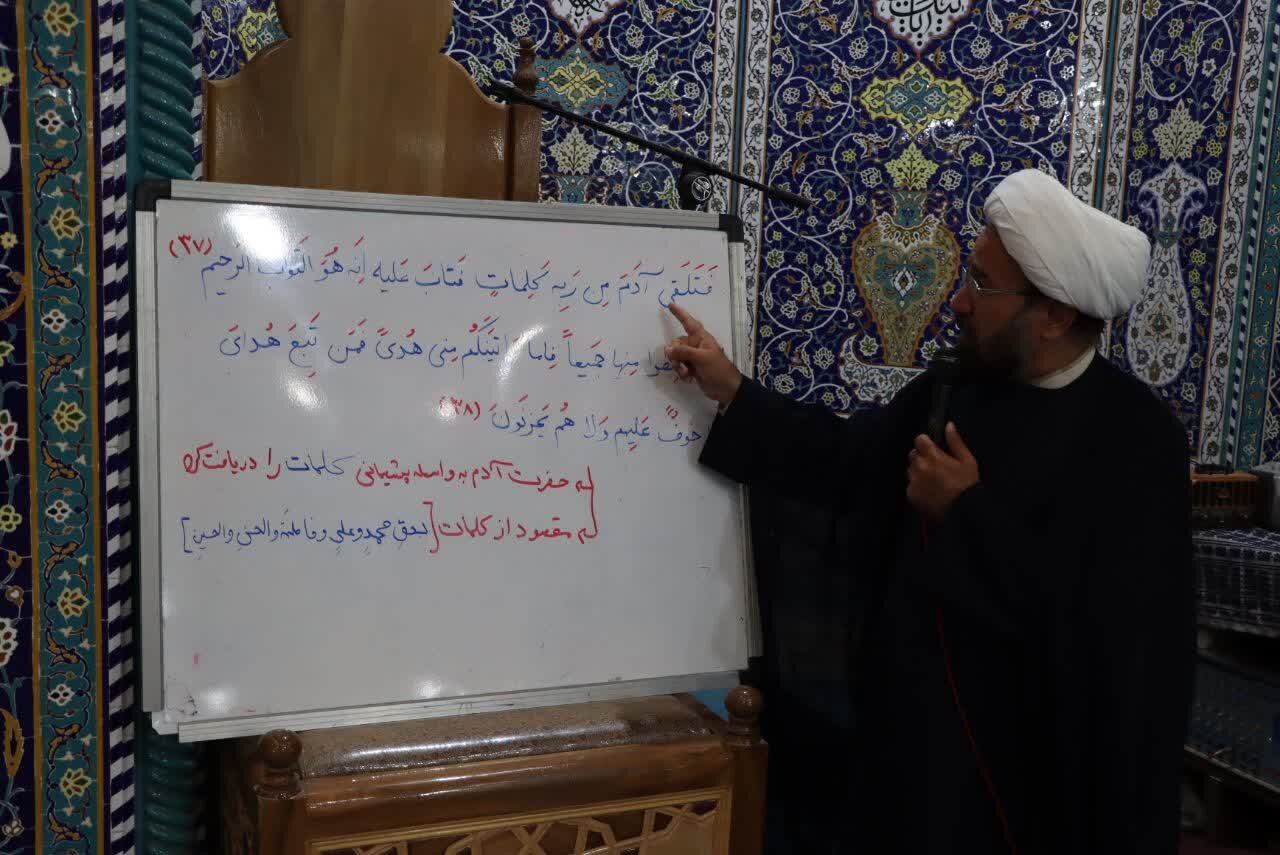 فَتَلَقى آدَمَ مِن رَبِه كَلِماتٍ فَتابَ عَلَيه اِنَه هُوَ التَوابُ الرَحیم (۳۷)
مِنها جَمیعاً فَاِما یَاتیَنَکُم مِنی هُدیً فَمَن تَبِعَ هُدایَ
خوفٌ عَلَیهِم وَلا هُم یَحزَنونَ (۳۸)
حضرت آدم به واسطه پشیمانی کلمات را دریافت کرد
مقصود از کلمات [بحقِ محمدٍ وعلیٍ وفاطمةَ والحسنِ والحسینِ]